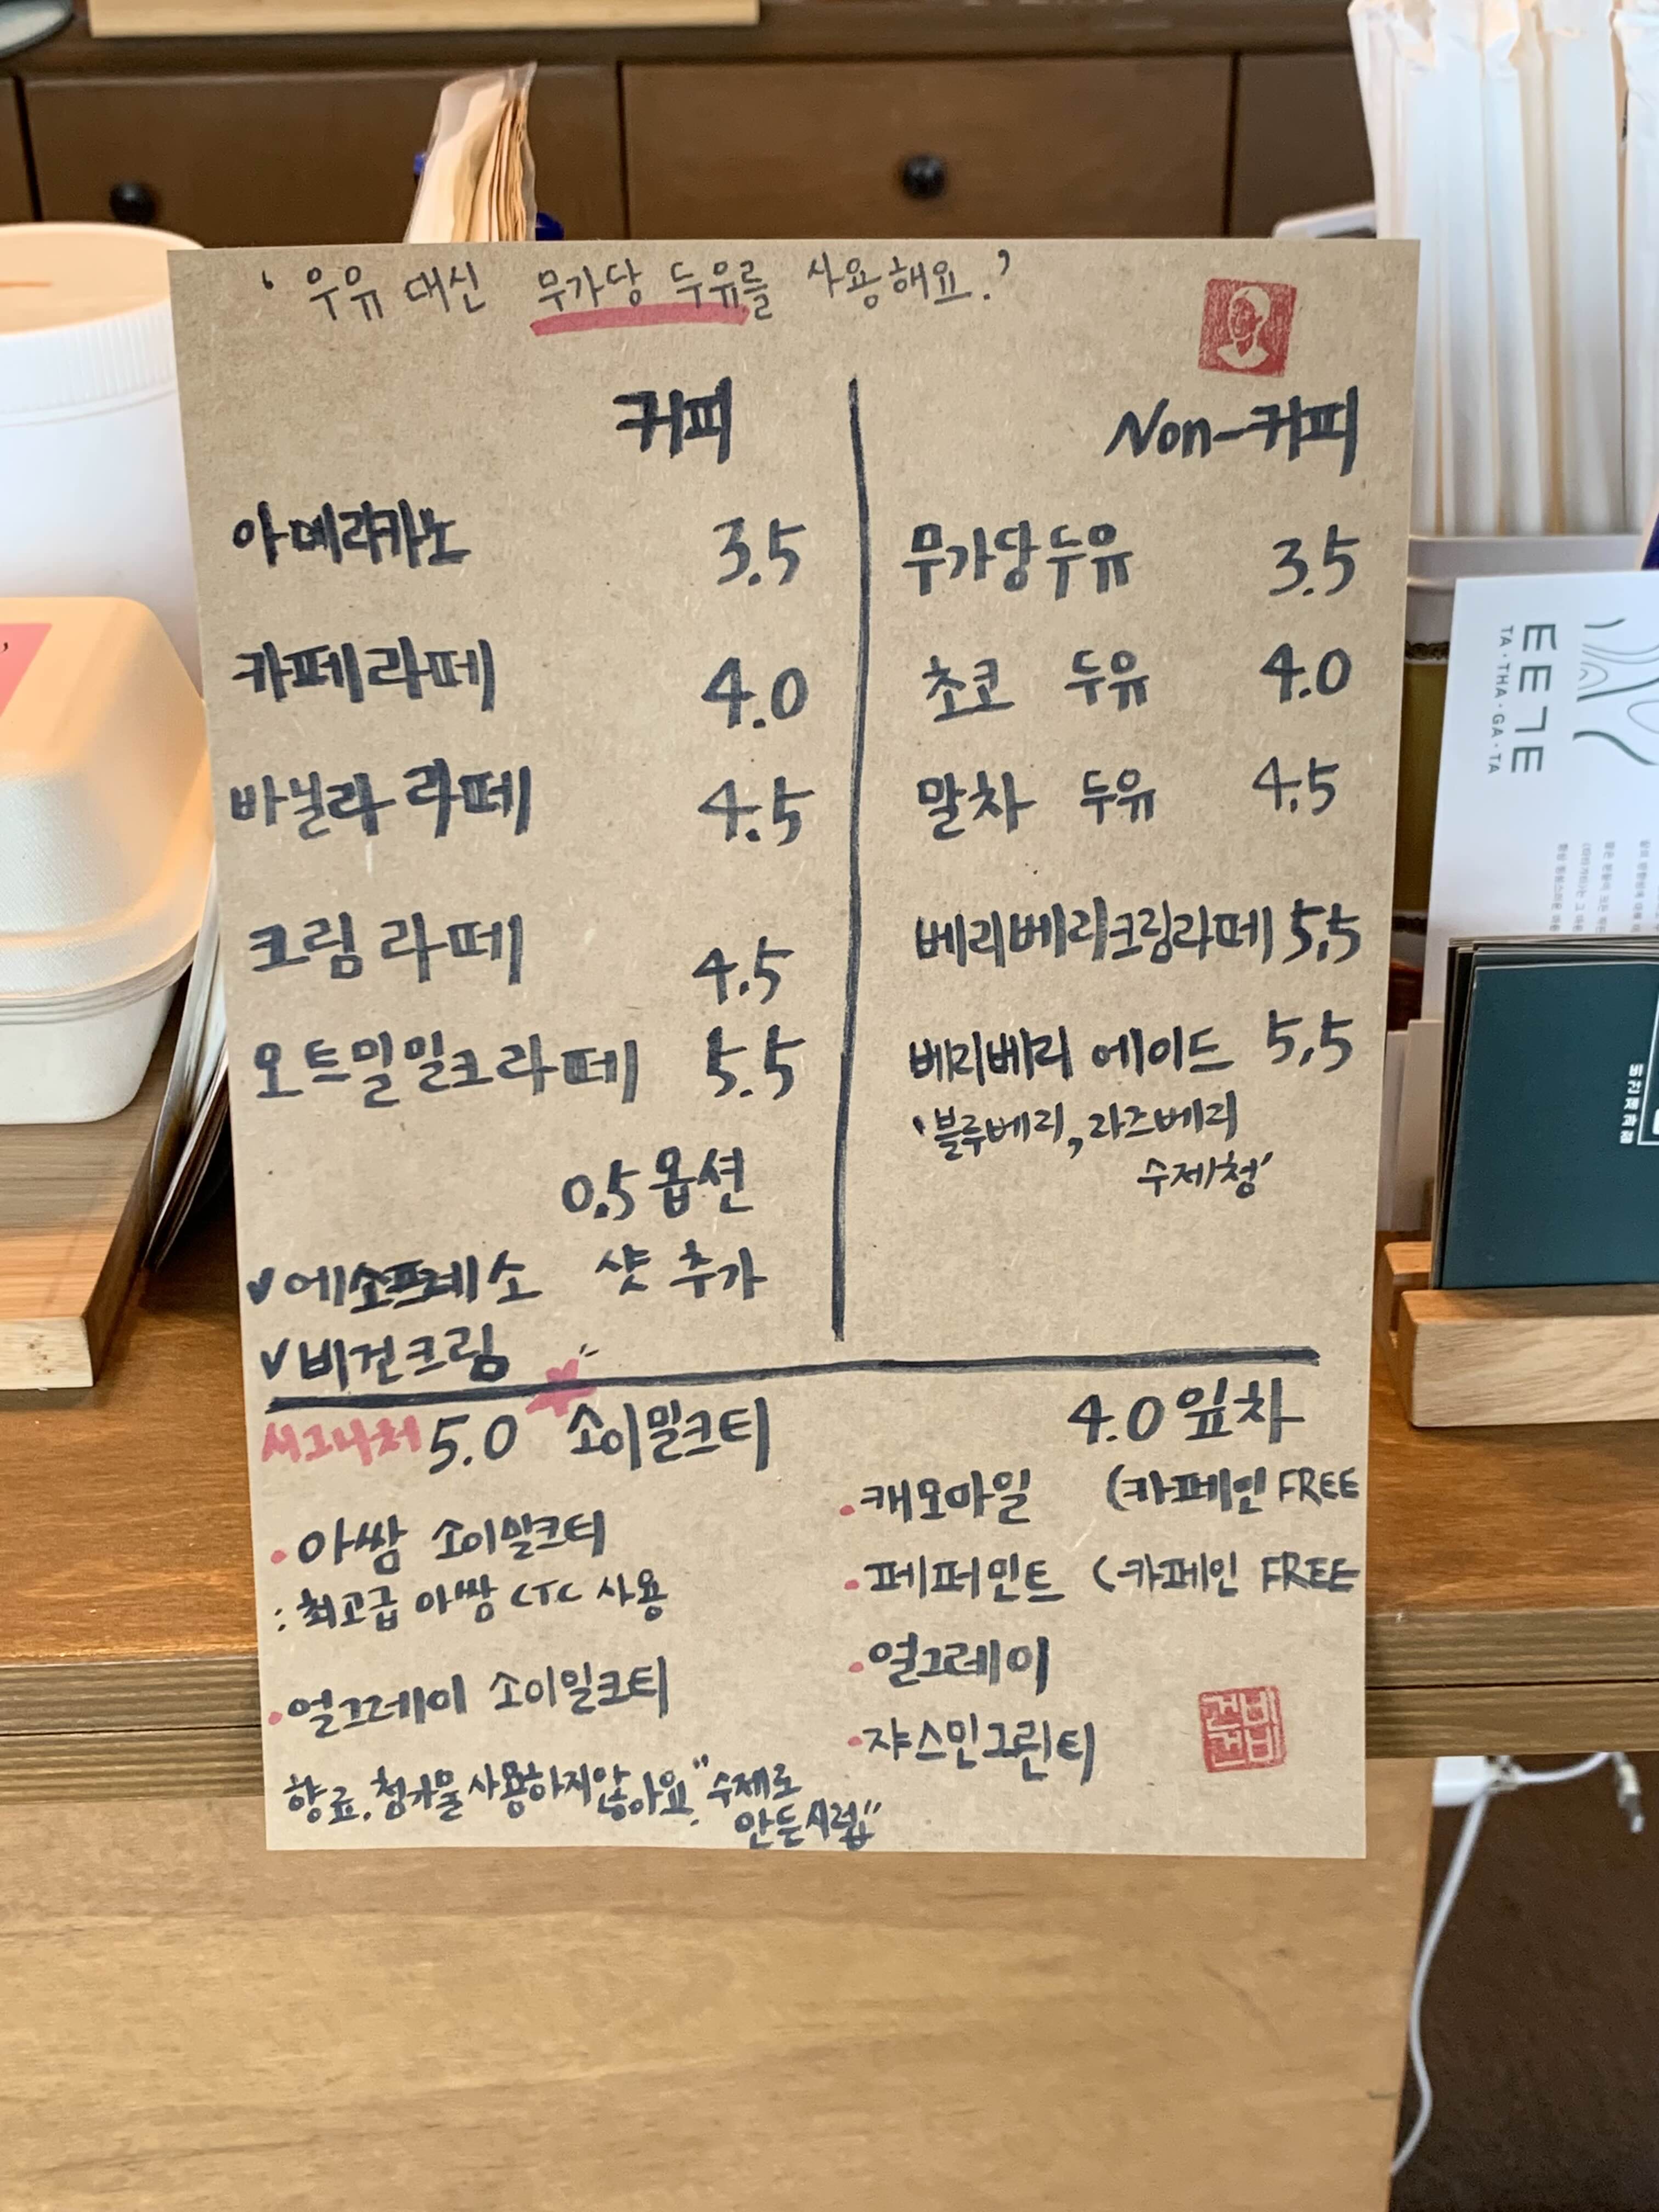 ‘우유 대신 무가당 두유를 사용해요.’
커피
아메리카노 3.5
카페라떼 4.0
바닐라 라떼 4.5
크림 라떼 4.5
오트밀밀크라떼 5.5
0.5 옵션
v 에소프레소 샷 추가
v 비건크림
Non-커피
무가당두유 3.5
초코 두유 4.0
말차 두유 4.5
베리베리크림라떼 5.5
베리베리 에이드 5.5
‘블루베리, 라즈베리
수제청’
시그니처 5.0 소이밀크티
• 아쌈 소이밀크티
: 최고급 아쌈 CTC 사용
• 얼그레이 소이밀크티
향료. 첨가물 사용하지않아요. "수제로
만든시럽"
4.0 잎차
• 캐모마일 (카페인 FREE
• 페퍼민트 (카페인 FREE
• 얼그레이
• 쟈스민그린티
비건
비건
TA·THA·GA·TA